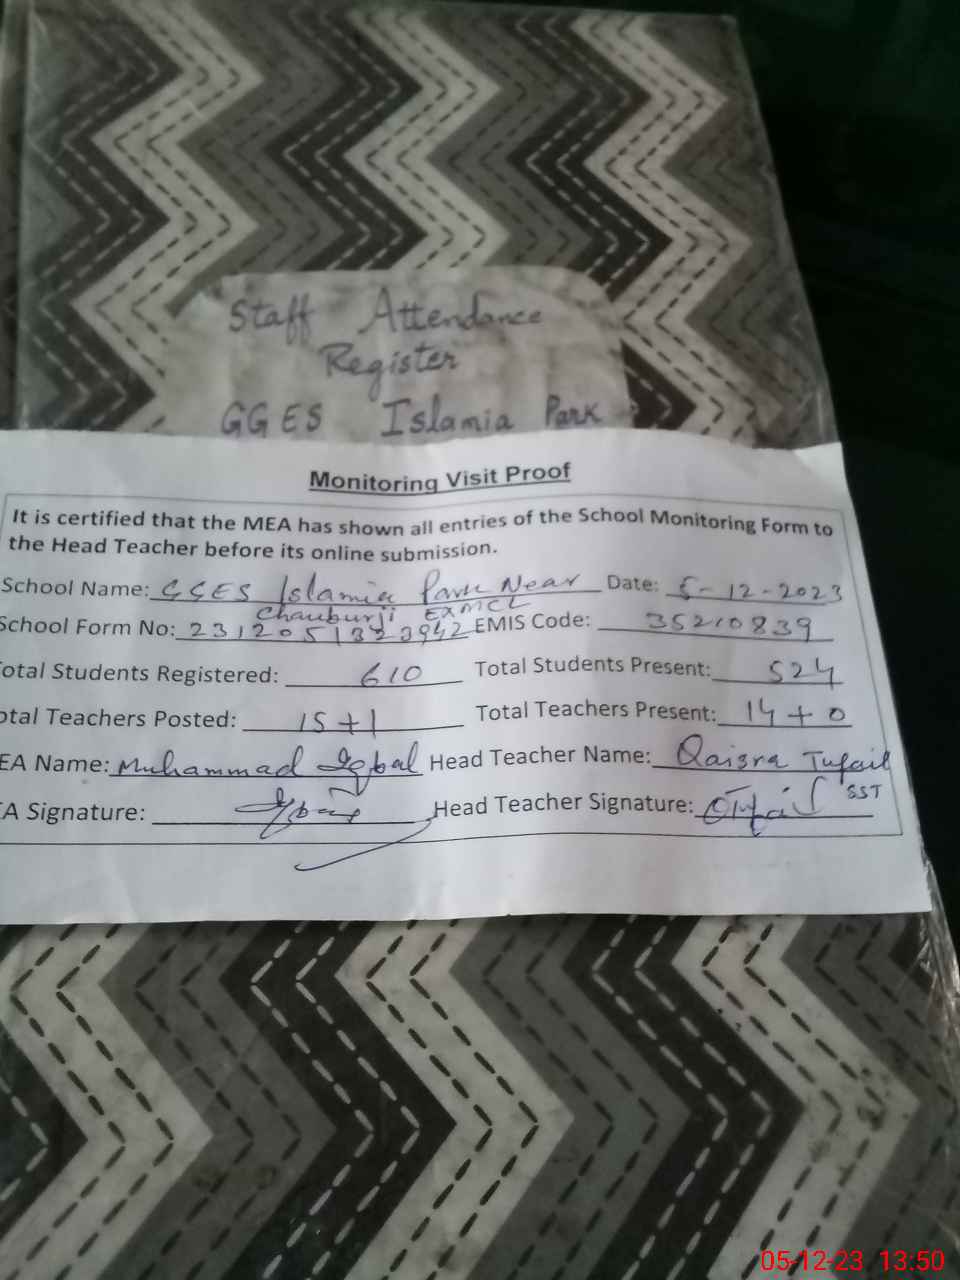 Staff Attendance
Register
GGES Islamia Park
Monitoring Visit Proof
It is certified that the MEA has shown all entries of the School Monitoring Form to
the Head Teacher before its online submission.
School Name: GGES Islamia Park Near Date: 5-12-2023
Chauburji EXMCL
School Form No: 2312051323942 EMIS Code: 35210839
otal Students Registered: 610 Total Students Present: 524
otal Teachers Posted: 15+1 Total Teachers Present: 14+0
EA Name: Muhammad Iqbal Head Teacher Name: Qaisra Tufail
EA Signature: Iqbal Head Teacher Signature: QTufail SST
05-12-23 13:50